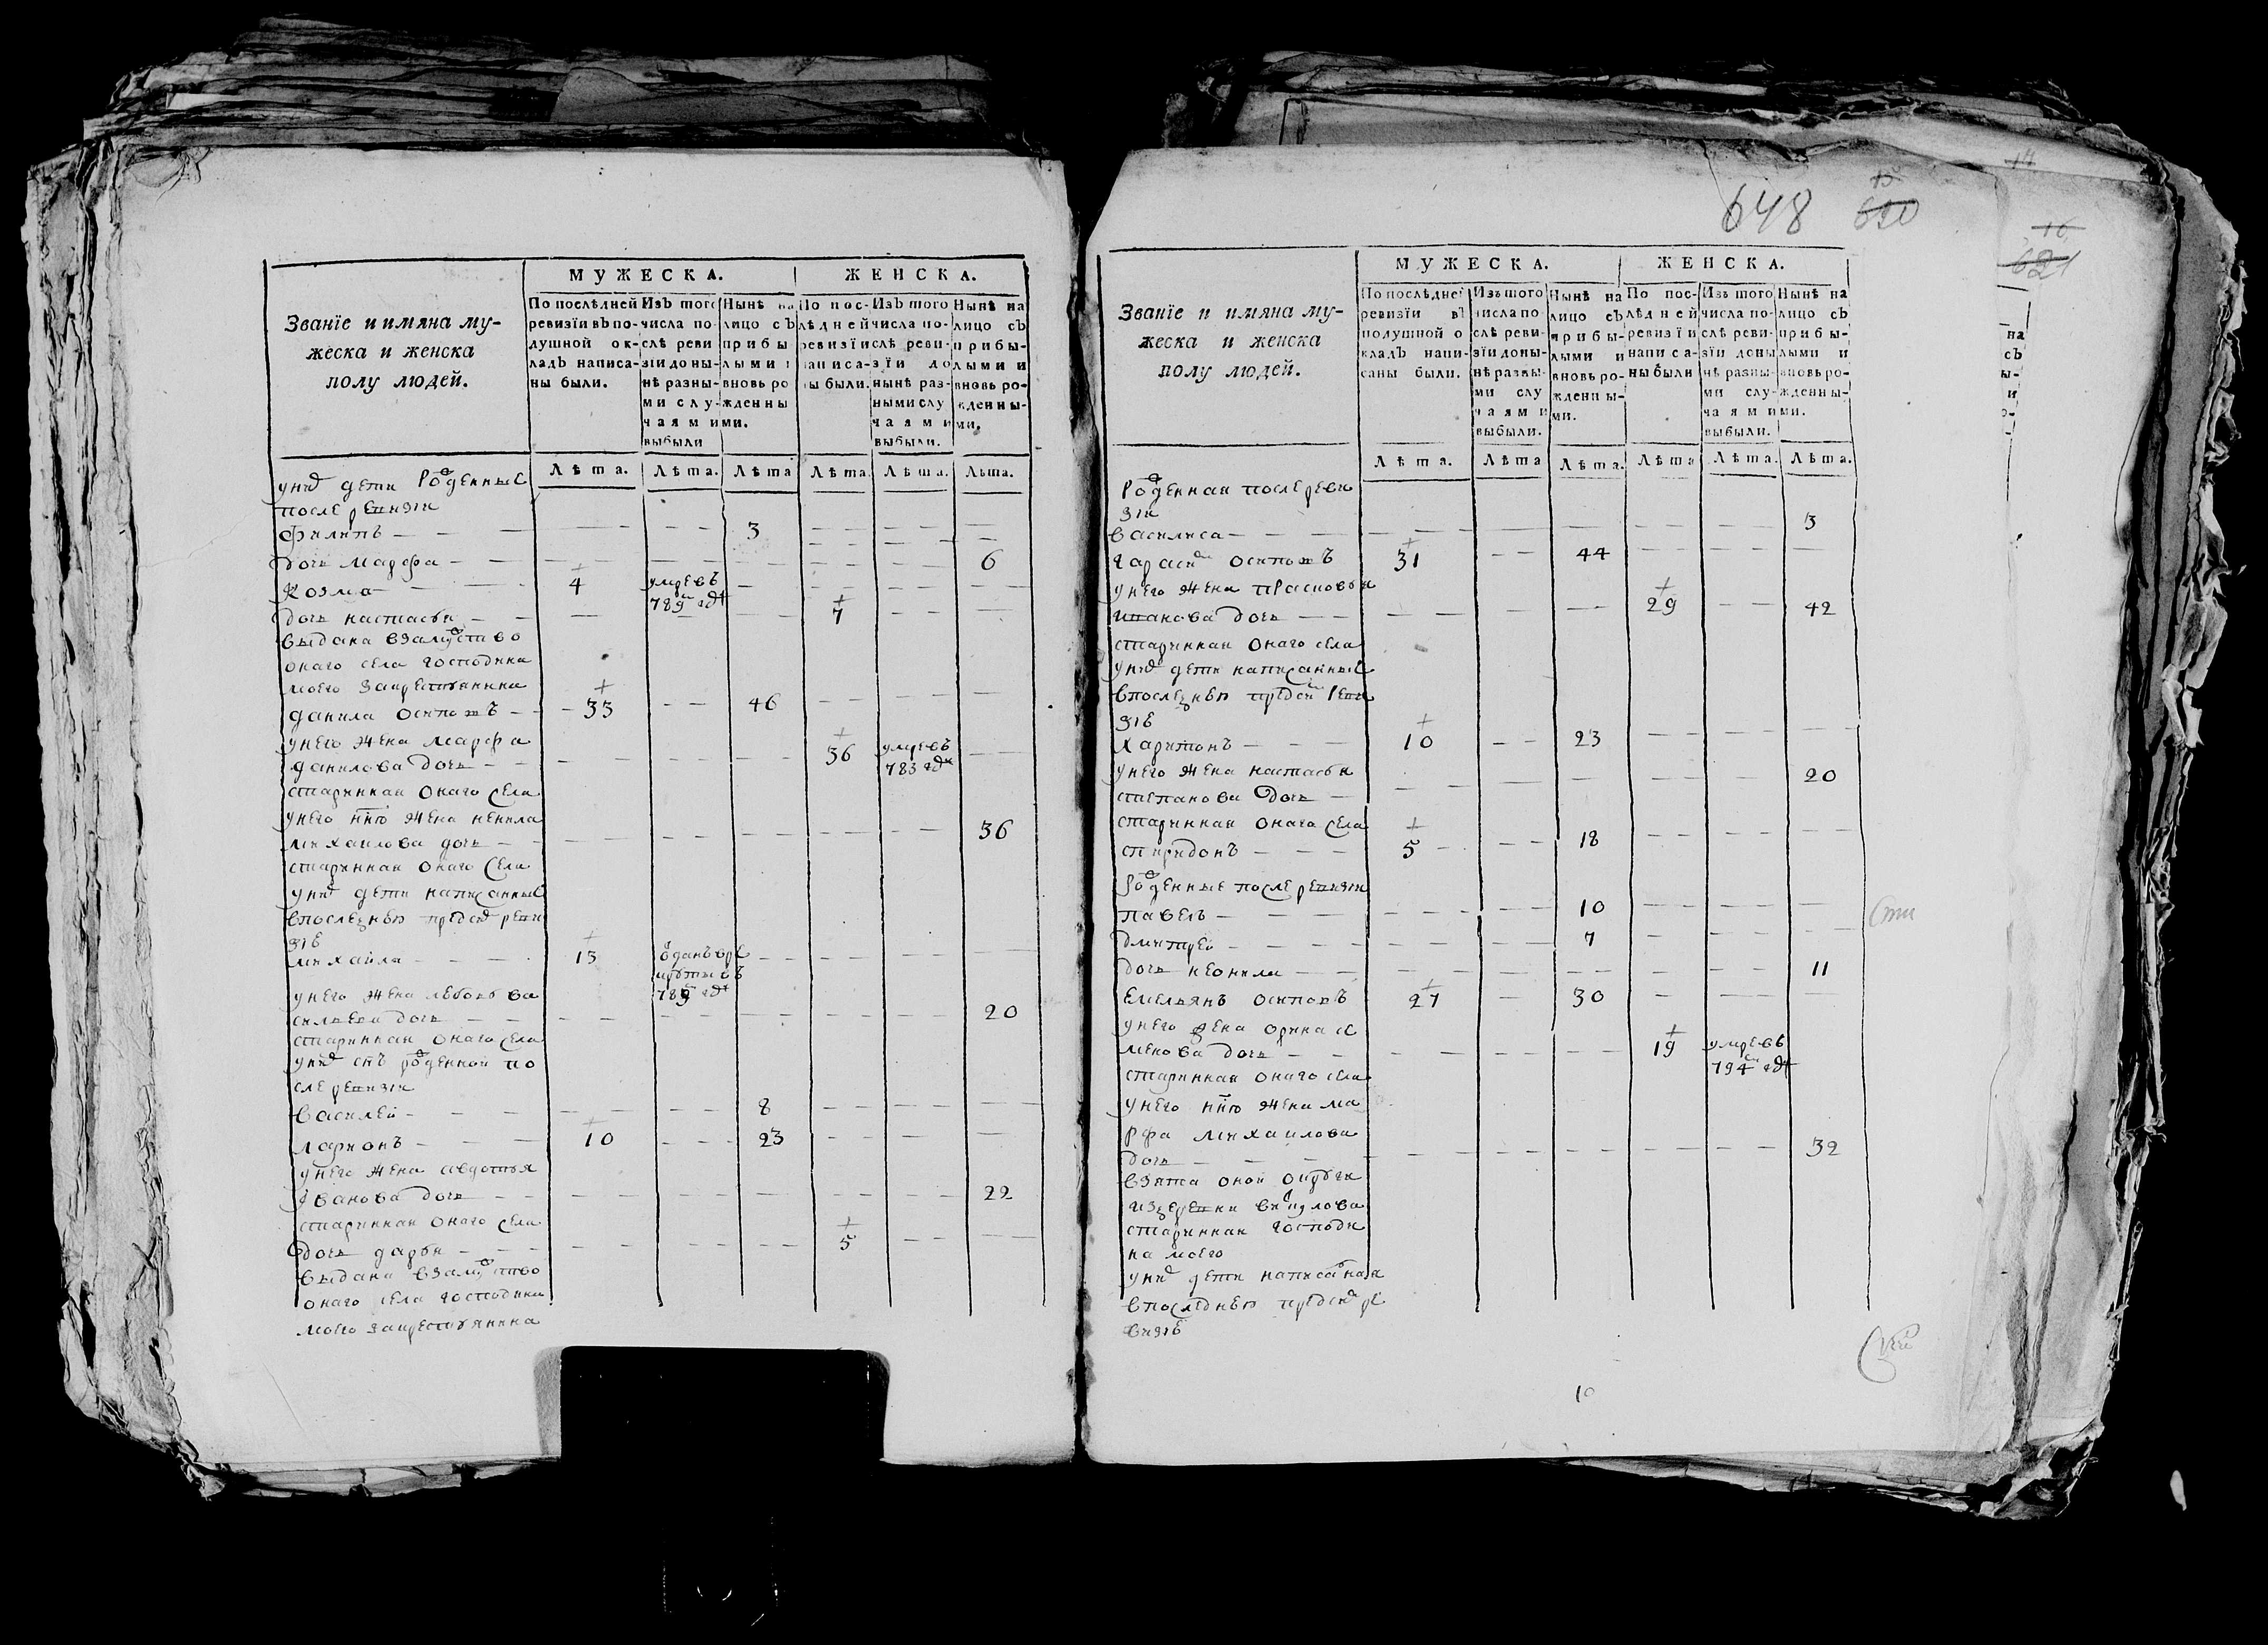 МУЖЕСКА. ЖЕНСКА.
Званїе и имяна му-
жеска и женска
полу людей.
По послѣдней
ревизїи въ по-
душной ок-
ладъ написа-
ны были.
Изъ того
числа по-
слѣ реви
зїи доны-
нѣ разны-
ми слу-
чаями
выбыли
Нынѣ на
лицо съ
прибы
лыми и
вновь ро
жденны
ми.
По пос-
лѣдней
ревизїи
написа-
ны были.
Изъ того
числа по-
слѣ реви-
зїи до
нынѣ раз-
ными слу
чаями
выбыли.
Нынѣ на
лицо съ
прибы-
лыми и
вновь ро-
жденны-
ми.
Лѣта. Лѣта. Лѣта Лѣта. Лѣта. Лѣта.
у них дети рожденные
после ревизии
Филипъ 3
дочь марфа 6
козма 4 умре въ
789м годе
дочь настасья 7
выдана взамужство
онаго села господина
моего закрестьянина
данила осиповъ 33 46
унего жена марфа
данилова дочь 36 умре въ
783 годе
старинная онаго села
унего ннѣ жена ненила
михаилова дочь 36
старинная онаго села
у них дети написанные
впоследней пред сим реви
зіе
михаила 13 отданъ вре
круты въ
789м годе
унего жена любовь ва
сильева дочь 20
старинная онаго села
у них снъ рожденной по
сле ревизии
василей 8
ларионъ 10 23
унего жена авдотья
Іванова дочь 22
старинная онаго села
дочь дарья 5
выдана взамужство
онаго села господина
моего закрестьянина
648 15
620
МУЖЕСКА. ЖЕНСКА.
Званїе и имяна му-
жеска и женска
полу людей.
По послѣдней
ревизїи въ
подушной о
кладъ напи-
саны были.
Изъ того
числа по
слѣ реви-
зїи доны-
нѣ разны-
ми слу
чаями
выбыли.
Нынѣ на
лицо съ
прибы-
лыми и
вновь ро-
жденны-
ми.
По пос-
лѣдней
ревизїи
написа-
ны были
Изъ того
числа по-
слѣ реви-
зїи доны
нѣ разны-
ми слу-
чаями
выбыли.
Нынѣ на
лицо съ
прибы-
лыми и
вновь ро-
жденны-
ми.
Лѣта. Лѣта Лѣта. Лѣта Лѣта. Лѣта.
рожденная после реви
зіи
василиса 3
гарасим осиповъ 31 44
унего жена прасковья
иванова дочь 29 42
старинная онаго села
у них дети написанные
впоследней пред сим реви
зіе
харитонъ 10 23
унего жена настасья
степанова дочь 20
старинная онаго села
спиридонъ 5 18
рожденные после ревизии
павелъ 10
дмитрей 7
дочь неонила 11
емельянъ осиповъ 27 30
унего жена орина се
менова дочь 19 умре въ
794м годе
старинная онаго села
унего ннѣ жена ма
рфа михаилова
дочь 32
взята оной округи
старинная господи
на моего
у них дети написанная
впоследней пред сим ре
визіе
10
16
621